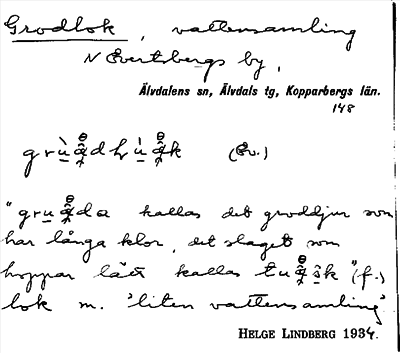 Grodlok, vattensamling
N Evertsbergs by,
Älvdalens sn, Älvdals tg, Kopparbergs län.
148
(Ev.)
kallas det groddjur som
har långa klor, det slaget som
hoppar lätt kallas (f.)
lok m. 'liten vattensamling'
HELGE LINDBERG 1934.